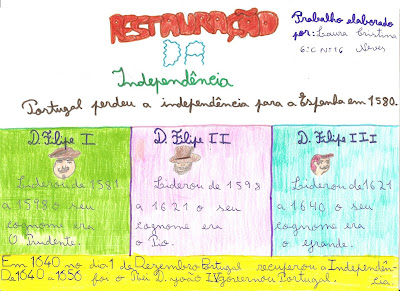 RESTAURAÇÃO
DA
Independência
Trabalho elaborado
por: Laura Cristina
6ºC Nº16 Neves
Portugal perdeu a independência para a Espanha em 1580.
D. Filipe I
Liderou de 1581
a 1598 o seu
cognome era
O Prudente.
D. Filipe II
Liderou de 1598
a 1621 o seu
cognome era
o Pio.
D. Filipe III
Liderou de 1621
a 1640 o seu
cognome era
o grande.
Em 1640 no dia 1 de Dezembro Portugal recuperou a Independên-
cia.
De 1640 a 1656 foi o Rei D. João IV governou Portugal.